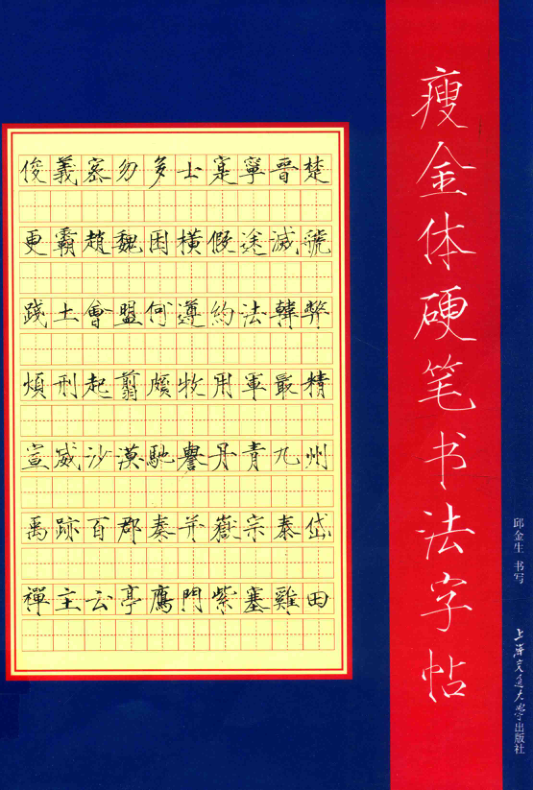 瘦金体硬笔书法字帖
俊義密勿多士寔寧晋楚
更霸趙魏困橫假途滅虢
踐土會盟何遵約法韓弊
煩刑起翦頗牧用軍最精
宣威沙漠馳譽丹青九州
禹跡百郡秦并嶽宗泰岱
禪主云亭鴈門紫塞雞田
邱金生 书写
上海交通大学出版社